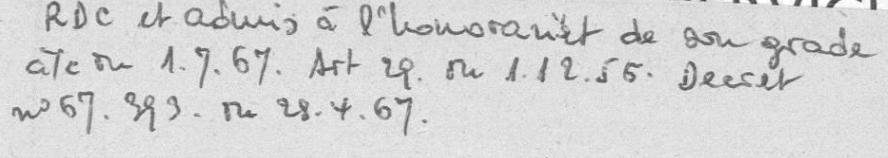 RDC et admis à l'honorariat de son grade
à/c du 1.7.67. Art 29. du 1.12.56. Decret
n° 67.393. du 28.4.67.